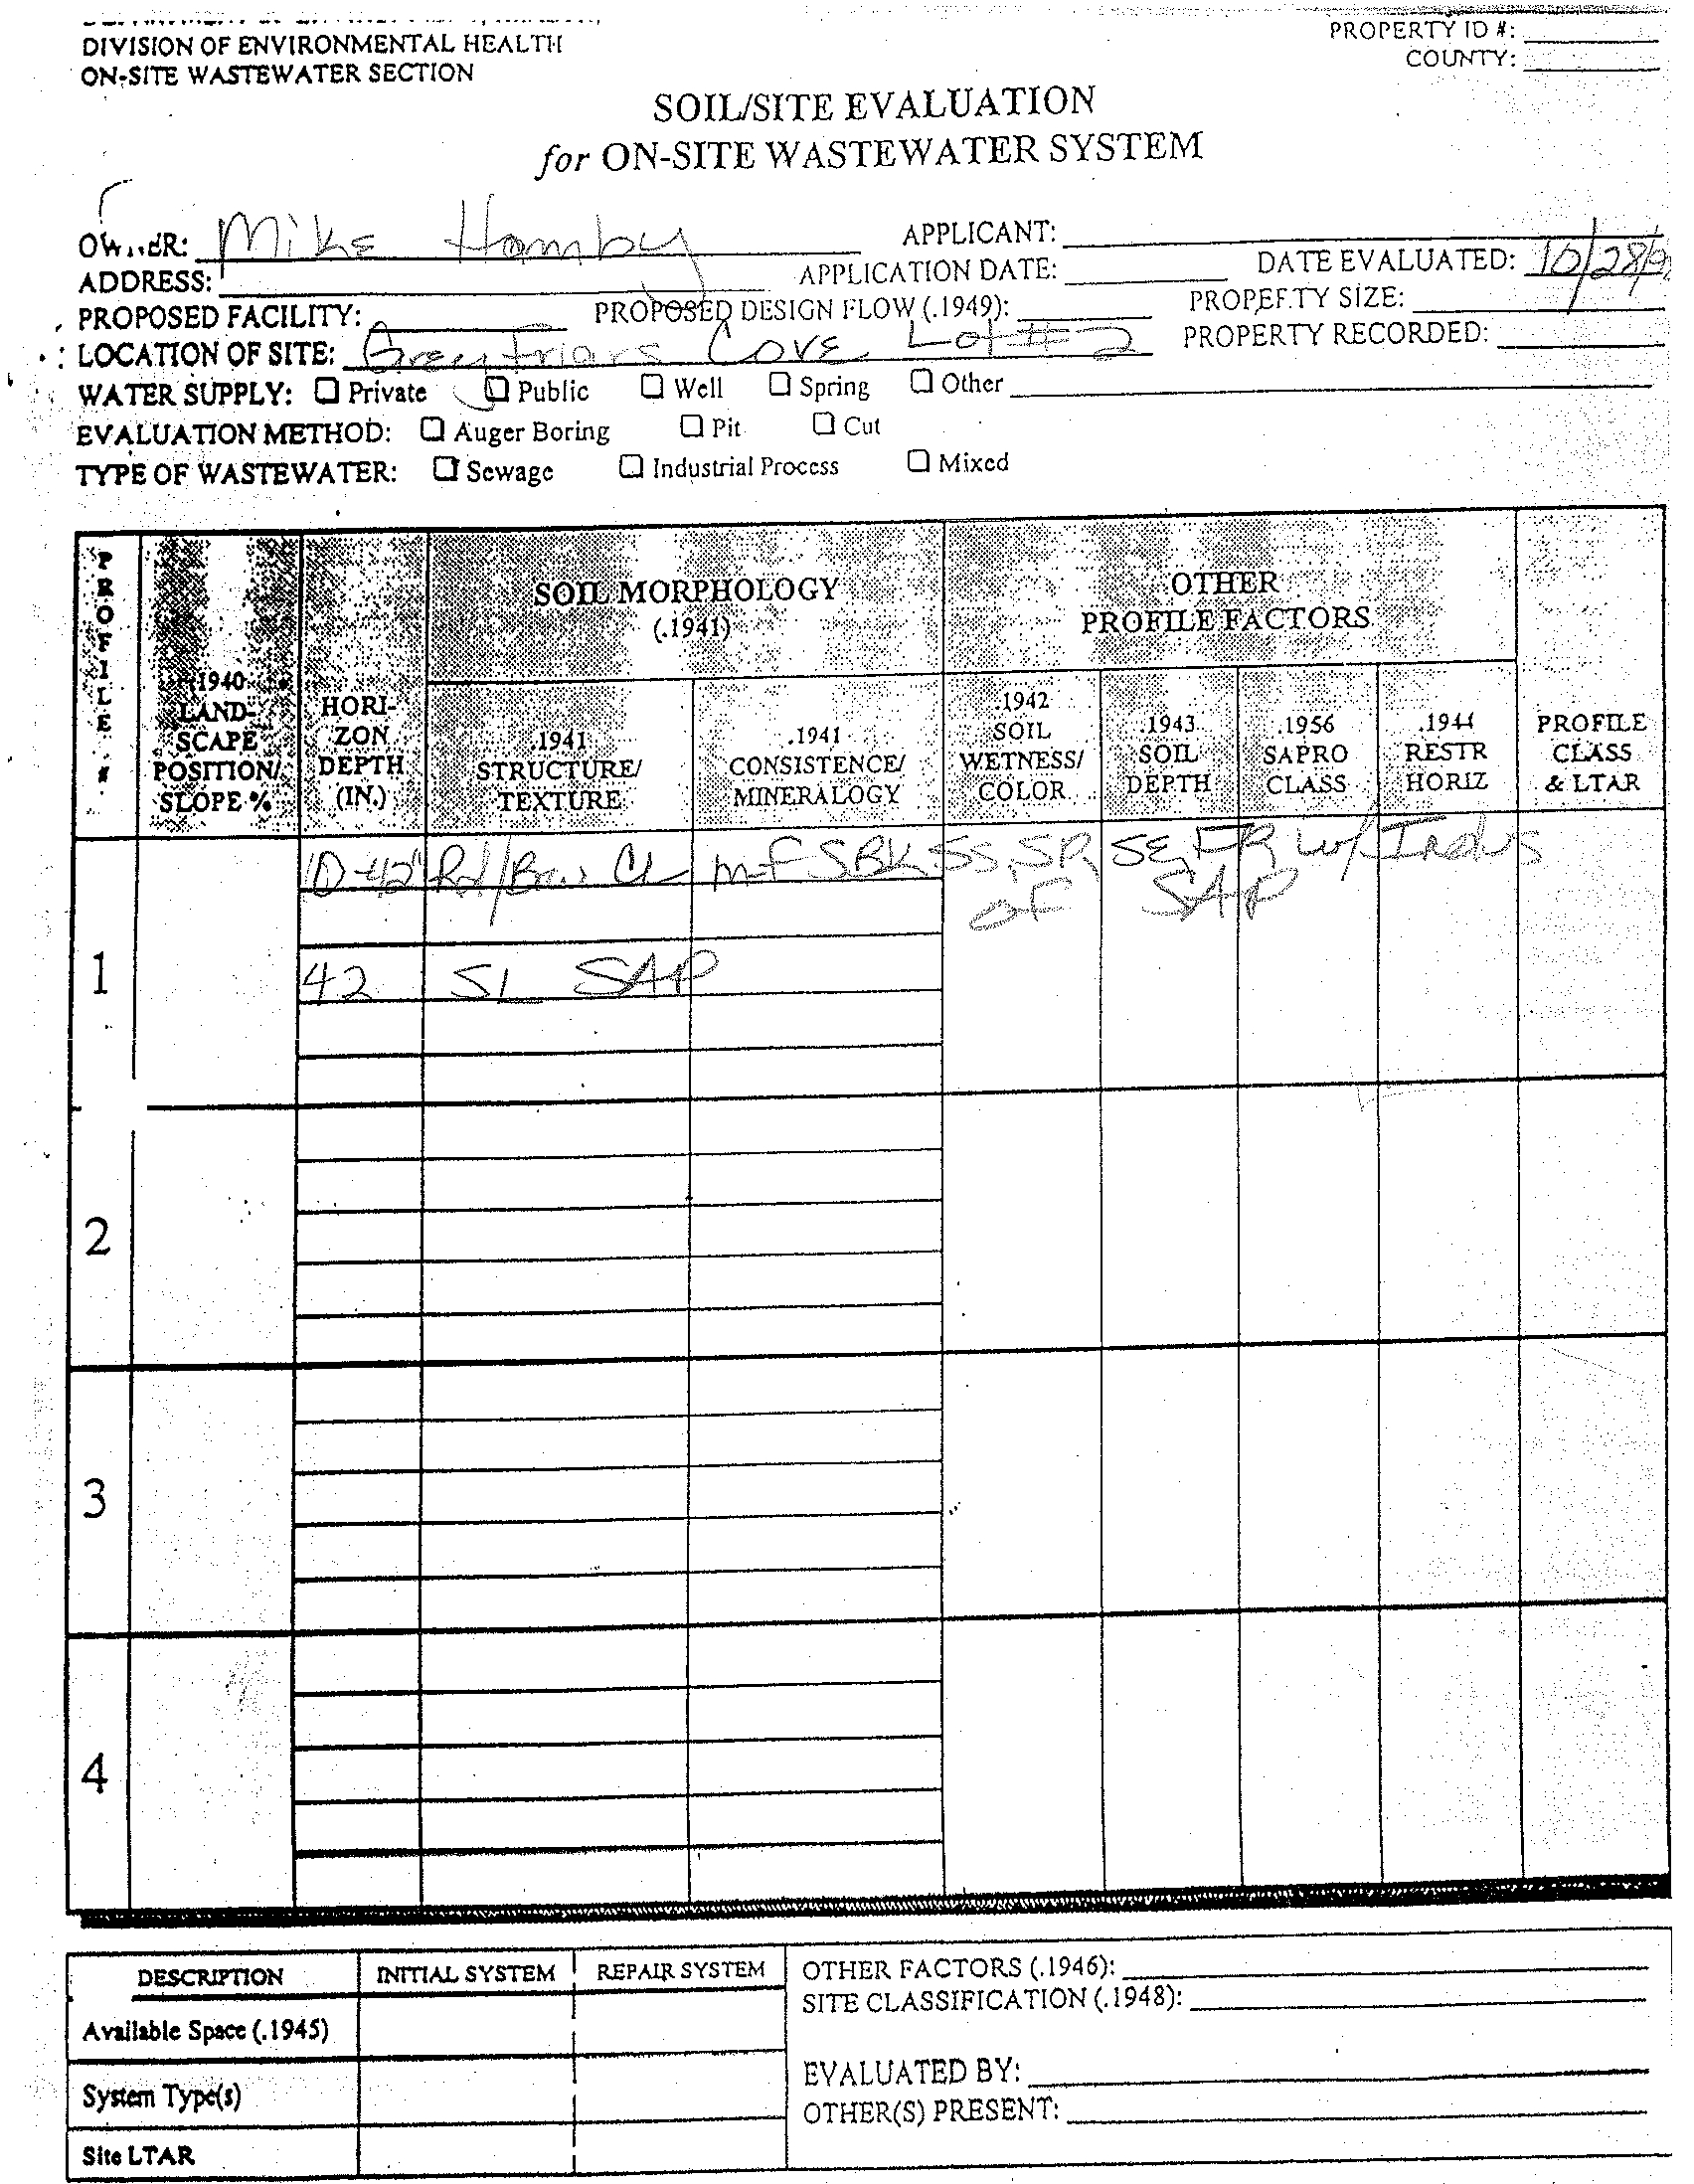 DIVISION OF ENVIRONMENTAL HEALTH
ON-SITE WASTEWATER SECTION
PROPERTY ID #:
COUNTY:
SOIL/SITE EVALUATION
for ON-SITE WASTEWATER SYSTEM
OWNER: Mike Hamby APPLICANT:
ADDRESS: APPLICATION DATE: DATE EVALUATED: 10/28/9
PROPOSED FACILITY: PROPOSED DESIGN FLOW (.1949): PROPERTY SIZE:
LOCATION OF SITE: Grey Friars Cove Lot # 2 PROPERTY RECORDED:
WATER SUPPLY: Private Public Well Spring Other
EVALUATION METHOD: Auger Boring Pit Cut
TYPE OF WASTEWATER: Sewage Industrial Process Mixed
PROFILE #
.1940 LANDSCAPE POSITION/ SLOPE %
HORI-ZON DEPTH (IN.)
SOIL MORPHOLOGY
(.1941)
.1941 STRUCTURE/ TEXTURE
.1941 CONSISTENCE/ MINERALOGY
OTHER
PROFILE FACTORS
.1942 SOIL WETNESS/ COLOR
.1943 SOIL DEPTH
.1956 SAPRO CLASS
.1944 RESTR HORIZ
PROFILE CLASS & LTAR
0-42" Rd/Brn CL m-f SBK SS, SP, SE, FR w/
of SAP
1
42 SL SAP
2
3
4
DESCRIPTION INITIAL SYSTEM REPAIR SYSTEM
Available Space (.1945)
System Type(s)
Site LTAR
OTHER FACTORS (.1946):
SITE CLASSIFICATION (.1948):
EVALUATED BY:
OTHER(S) PRESENT: